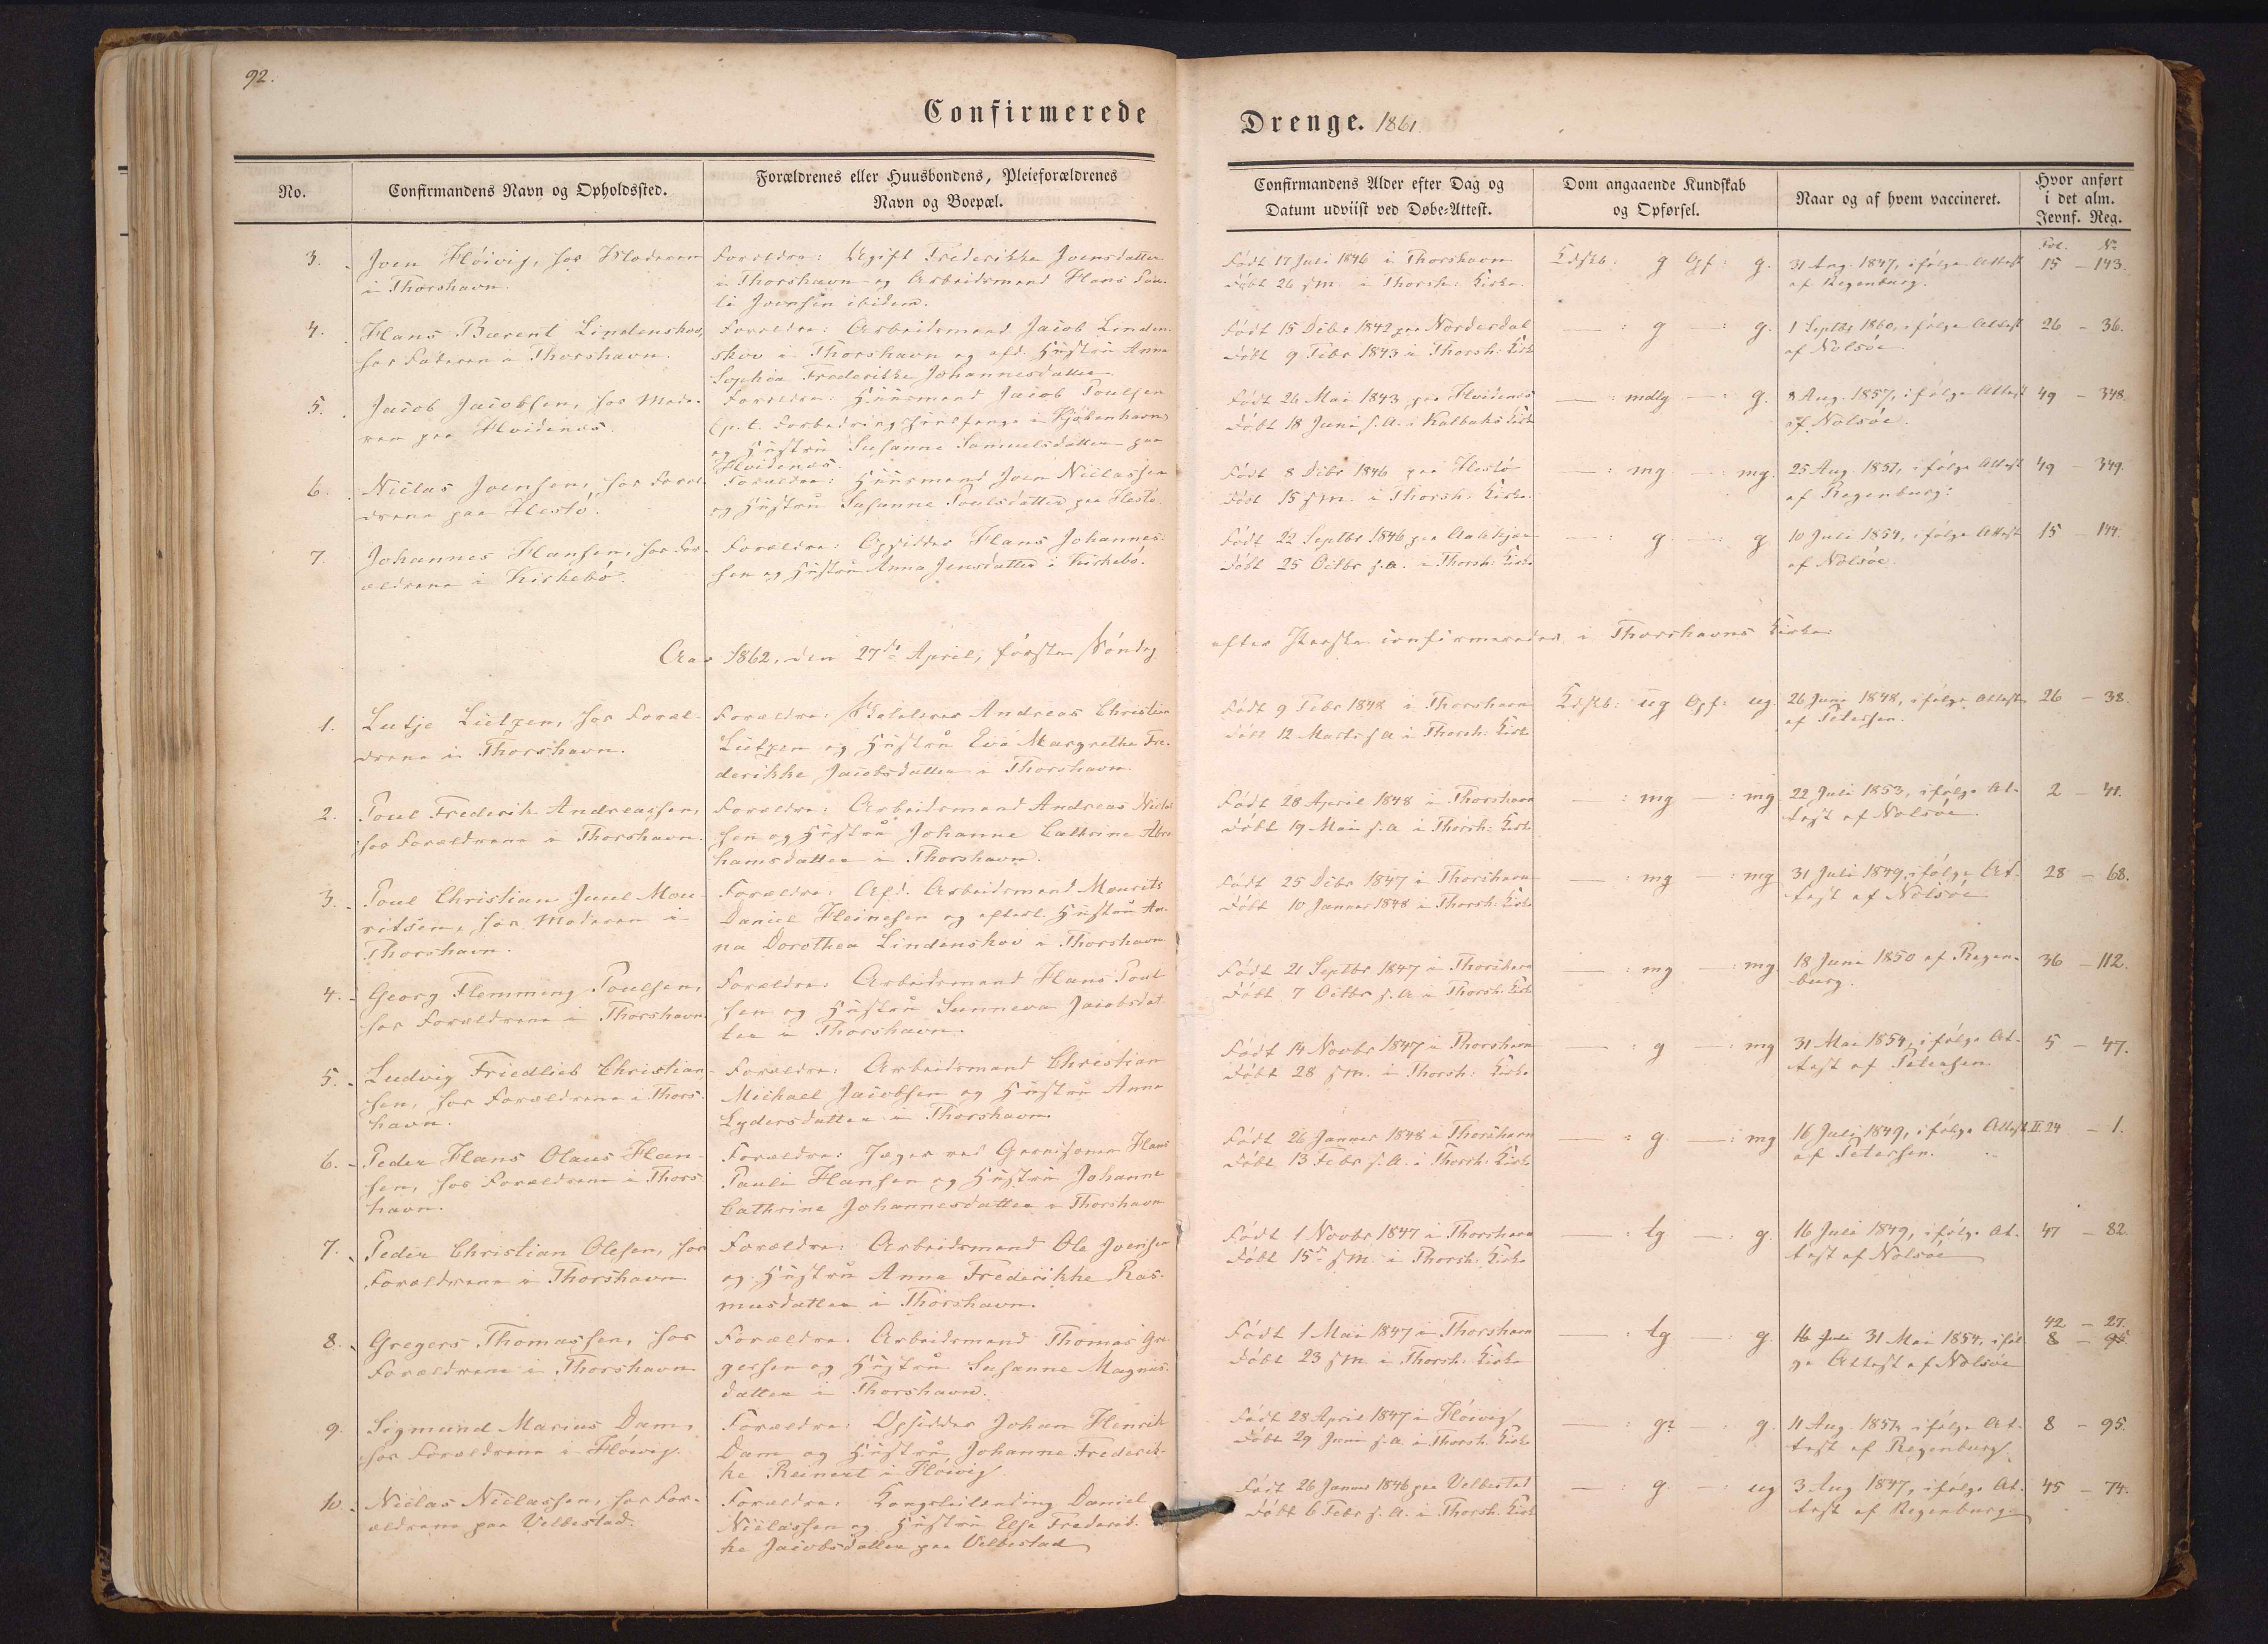 92.
Confirmerede
Drenge. 1861
No.
Confirmandens Navn og Opholdssted.
Forældrenes eller Huusbondens, Pleieforældrenes
Navn og Boepæl.
Confirmandens Alder efter Dag og
Datum udviist ved Døbe-Attest.
Dom angaaende Kundskab
og Opførsel.
Naar og af hvem vaccineret.
Hvor anført
i det alm.
Jevnf. Reg.
Fol. No
3.
Joen Høivig, hos Moderen
i Thorshavn.
Forældre: Ugift Frederikke Joensdatter
i Thorshavn og Arbeidsmand Hans Pau-
li Joensen ibidem.
Født 17 Juli 1846 i Thorshavn
Døbt 26 s.m. i Thorsh: Kirke.
Kdskb: g Opf: g.
31 Aug. 1847, ifølge Attest
af Regenburg.
15 - 143.
4.
Hans Bærent Lindenskov,
hos Faderen i Thorshavn.
Forældre: Arbeidsmand Jacob Linden-
skov i Thorshavn og afd. Hustru Anna
Sophia Frederikke Johannesdatter
Født 15 Decbr 1842 paa Norderdal
Døbt 9 Febr 1843 i Thorsh: Kirk
— : g — : g.
1 Septbr 1860, ifølge Attest
af Nolsöe
26 - 36.
5.
Jacob Jacobsen, hos Mode-
ren paa Hvidenæs.
Forældre: Huusmand Jacob Poulsen
(p.t. Forbedringshuusfange i Kjöbenhavn)
og Hustru Susanne Samuelsdatter paa
Hvidenæs.
Født 26 Mai 1843 paa Hvidenæs
Døbt 18 Juni s.A. i Kalbaks Kirk
— : mdlg — : g.
8 Aug. 1857, ifølge Attest
af Nolsöe.
49 - 348.
6.
Niclas Joensen, hos Foræl-
drene paa Hestö.
Forældre: Huusmand Joen Niclassen
og Hustru Susanne Poulsdatter paa Hestö.
Født 8 Decbr 1846 paa Hestö
Døbt 15 s.m. i Thorsh: Kirke.
— : mg — : mg.
25 Aug. 1857, ifølge Attest
af Regenburg.
49 - 349.
7.
Johannes Hansen, hos For-
ældrene i Kirkebö.
Forældre: Opsidder Hans Johannes-
sen og Hustru Anna Jensdatter i Kirkebö.
Født 22 Septbr 1846 paa
Døbt 25 Octbr s.A. i Thorsh: Kirke
— : g — : g
10 Juli 1854, ifølge Attest
af Nolsöe.
15 - 144.
Aar 1862, den 27de April, förste Söndag
efter Paaske confirmerede i Thorshavns Kirke:
1.
Lutje Lützen, hos Foræl-
drene i Thorshavn.
Forældre: Andreas Christian
Lützen og Hustru Eva Margrethe Fre-
derikke Jacobsdatter i Thorshavn.
Født 9 Febr 1848 i Thorshavn
Døbt 12 Marts s.A. i Thorsh: Kirke
Kdskb: ug Opf: ug.
26 Juni 1848, ifølge Attest
af Petersen.
26 - 38.
2.
Poul Frederik Andreassen,
hos Forældrene i Thorshavn.
Forældre: Arbeidsmand Andreas Niclas-
sen og Hustru Johanne Cathrine Abra-
hamsdatter i Thorshavn.
Født 28 April 1848 i Thorshavn
Døbt 19 Mai s.A. i Thorsh: Kirke
— : mg — : mg
22 Juli 1853, ifølge At-
test af Nolsöe.
2 - 41.
3.
Poul Christian Juul Mou-
ritsen, hos Moderen i
Thorshavn.
Forældre: Afd. Arbeidsmand Mourits
Daniel Heinesen og efterl. Hustru An-
na Dorothea Lindenskov i Thorshavn
Født 25 Decbr 1847 i Thorshavn
Døbt 10 Januar 1848 i Thorsh: Kirke
— : mg — : mg
31 Juli 1849, ifølge At-
test af Nolsöe
28 - 68.
4.
Georg Flemming Poulsen,
hos Forældrene i Thorshavn.
Forældre: Arbeidsmand Hans Poul-
sen og Hustru Sunneva Jacobsdat-
ter i Thorshavn.
Født 21 Septbr 1847 i Thorshavn
Døbt 7 Octbr s.A. i Thorsh: Kirke
— : mg — : mg.
18 Juni 1850 af Regen-
burg.
36 - 112.
5.
Ludvig Friedlieb Christian-
sen, hos Forældrene i Thors-
havn.
Forældre: Arbeidsmand Christian
Michael Jacobsen og Hustru Anna
Lydersdatter i Thorshavn.
Født 14 Novbr 1847 i Thorshavn
Døbt 28 s.m. i Thorsh: Kirke
— : g — : mg
31 Mai 1854, ifølge At-
test af Petersen.
5 - 47.
6.
Peder Hans Olaus Han-
sen, hos Forældrene i Thors-
havn.
Forældre: Jæger ved Garnisonen Hans
Pauli Hansen og Hustru Johanne
Cathrine Johannesdatter i Thorshavn
Født 26 Januar 1848 i Thorshavn
Døbt 13 Febr s.A. i Thorsh: Kirke
— : g. — : mg
16 Juli 1849, ifølge Attest
af Petersen.
II. 24 - 1.
7.
Peder Christian Olesen, hos
Forældrene i Thorshavn
Forældre: Arbeidsmand Ole Joensen
og Hustru Anna Frederikke Ras-
musdatter i Thorshavn.
Født 1 Novbr 1847 i Thorshavn
Døbt 15de s.m. i Thorsh: Kirke
— : tg — : g.
16 Juli 1849, ifølge At-
test af Nolsöe
47 - 82.
8.
Gregers Thomassen, hos
Forældrene i Thorshavn
Forældre: Arbeidsmand Thomas Gre-
gersen og Hustru Susanne Magnus-
datter i Thorshavn.
Født 1 Mai 1847 i Thorshavn
Døbt 23 s.m. i Thorsh: Kirke
— : tg — : g.
16 Juli 31 Mai 1854, iføl-
ge Attest af Nolsöe
42 - 27.
8 - 95
9.
Sigmund Marius Dam,
hos Forældrene i Höivig.
Forældre: Opsidder Johan Henrik
Dam og Hustru Johanne Frederik-
ke Reinert i Höivig
Født 28 April 1847 i Höivig
Døbt 29 Juni s.A. i Thorsh: Kirke
— : g? — : g.
11 Aug. 1857, ifølge At-
test af Regenburg.
8 - 95.
10.
Niclas Niclassen, hos For-
ældrene paa Velbestad.
Forældre: Kongsleilænding Daniel
Niclassen og Hustru Else Frederik-
ke Jacobsdatter paa Velbestad
Født 26 Januar 1846 paa Velbestad
Døbt 6 Febr s.A. i Thorsh: Kirke
— : g. — : ug
3 Aug 1847, ifølge At-
test af Regenburg
45 - 74.